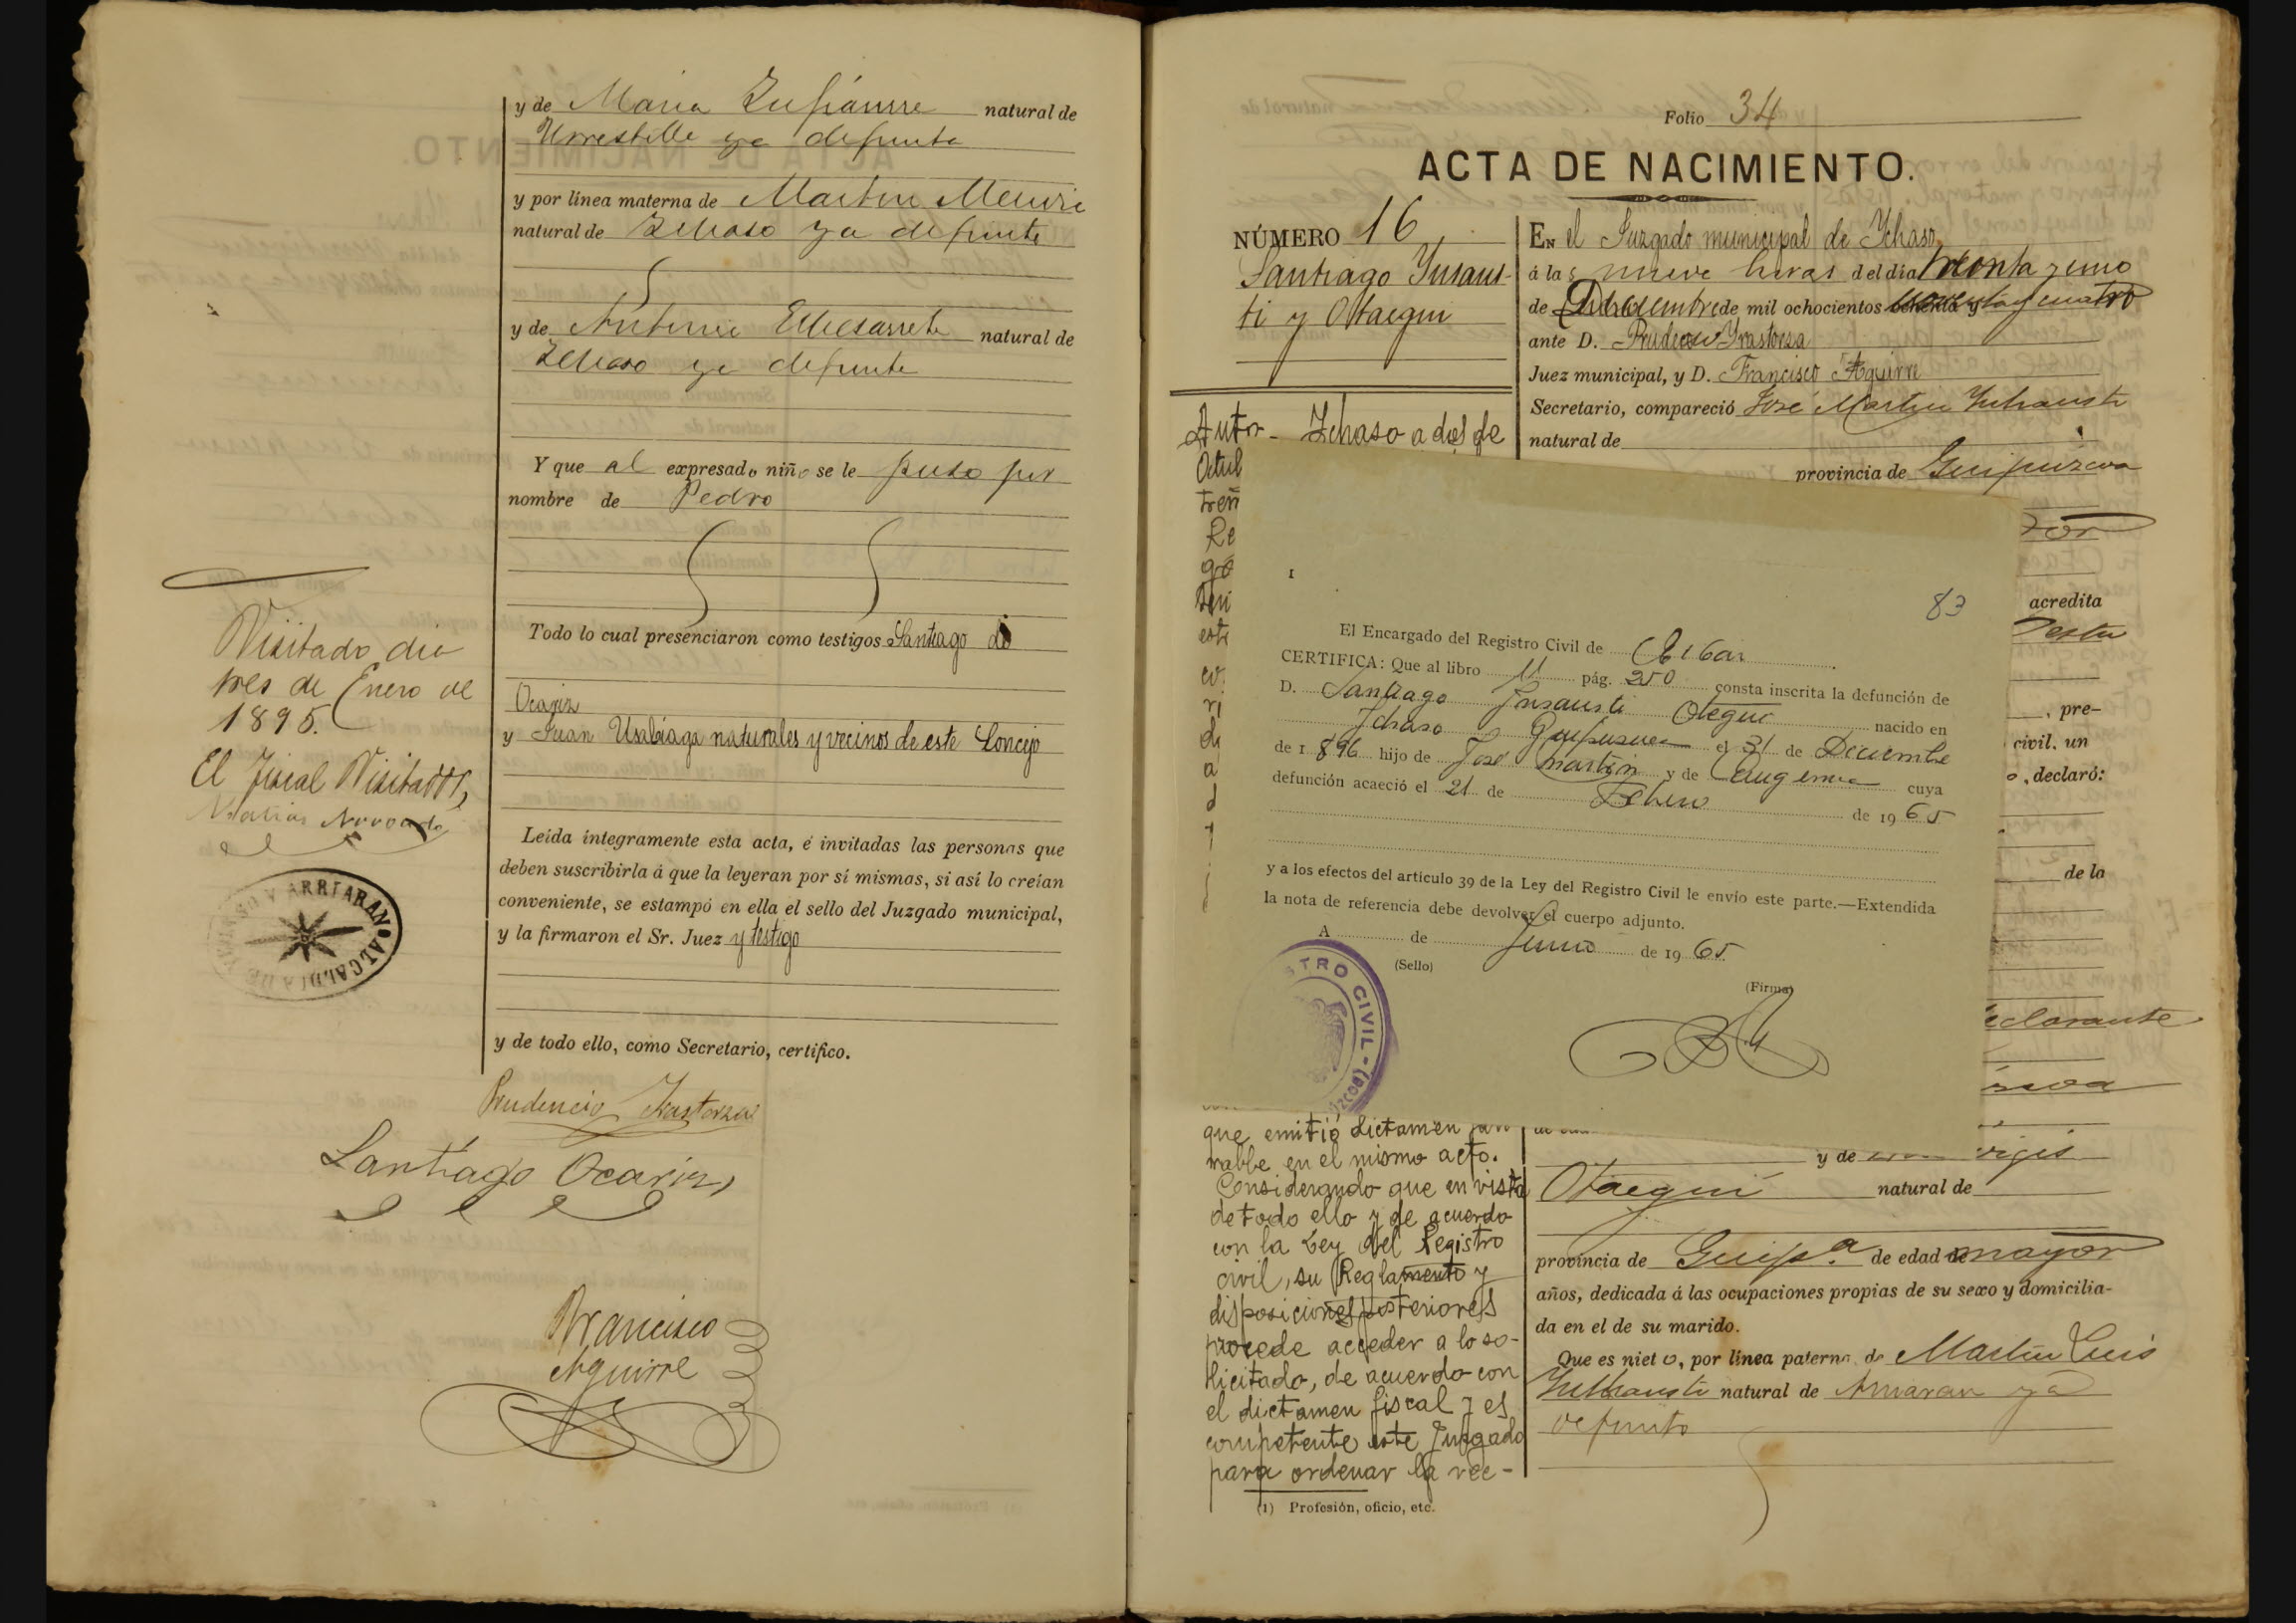 y de Maria Zufiaurre natural de
Urrestille ya defunta
y por línea materna de Martin Mendia
natural de Ichaso ya defunto
y de Antonia Echezarreta natural de
Ichaso ya defunta
Y que al expresado niño se le puso por
nombre de Pedro
Todo lo cual presenciaron como testigos Santiago de
Ocariz
y Juan Usabiaga naturales y vecinos de este Concejo
Leída íntegramente esta acta, é invitadas las personas que
deben suscribirla á que la leyeran por sí mismas, si así lo creían
conveniente, se estampó en ella el sello del Juzgado municipal,
y la firmaron el Sr. Juez y testigo
y de todo ello, como Secretario, certifico.
Prudencio Irastorza
Santiago Ocariz
Francisco
Aguirre
Visitado dia
tres de Enero de
1895.
El Fiscal Visitador,
ARRIARAN ALCALDIA DE
Folio 34
ACTA DE NACIMIENTO.
NÚMERO 16
Santiago Insaus-
ti y Otaegui
En el Juzgado municipal de Ichaso
á las nueve horas del día treinta y uno
de Diciembre de mil ochocientos ochenta y noventa y cuatro
ante D. Prudencio Irastorza
Juez municipal, y D. Francisco Aguirre
Secretario, compareció José Martin Inchausti
natural de
provincia de Guipúzcoa
acredita
, pre-
civil, un
o, declaró:
de la
declarante
Auto- Ichaso a dies de
Octub
trein
Re
go
este
co
ri
di
a
d
1
83
El Encargado del Registro Civil de Eibar
CERTIFICA: Que al libro 11 pág. 250 consta inscrita la defunción de
D. Santiago Insausti Otegui nacido en
Ichaso Guipuzcoa el 31 de Diciembre
de 1896 hijo de José Martin y de Eugenia cuya
defunción acaeció el 21 de Febrero de 1965
y a los efectos del artículo 39 de la Ley del Registro Civil le envío este parte.—Extendida
la nota de referencia debe devolver el cuerpo adjunto.
A de Junio de 1965
(Sello)
(Firma)
STRO CIVIL - (
que emitió dictamen fav
rable en el mismo acto.
Considerando que en vista
de todo ello y de acuerdo
con la Ley del Registro
civil, su Reglamento y
disposiciones posteriores
procede acceder a lo so-
licitado, de acuerdo con
el dictamen fiscal y es
competente este Juzgado
para ordenar la rec-
y de
Otaegui natural de
provincia de Guipª. de edad de mayor
años, dedicada á las ocupaciones propias de su sexo y domicilia-
da en el de su marido.
Que es nieto, por línea paterna de Martin Luis
Inchausti natural de Arriaran ya
defunto
(1) Profesión, oficio, etc.